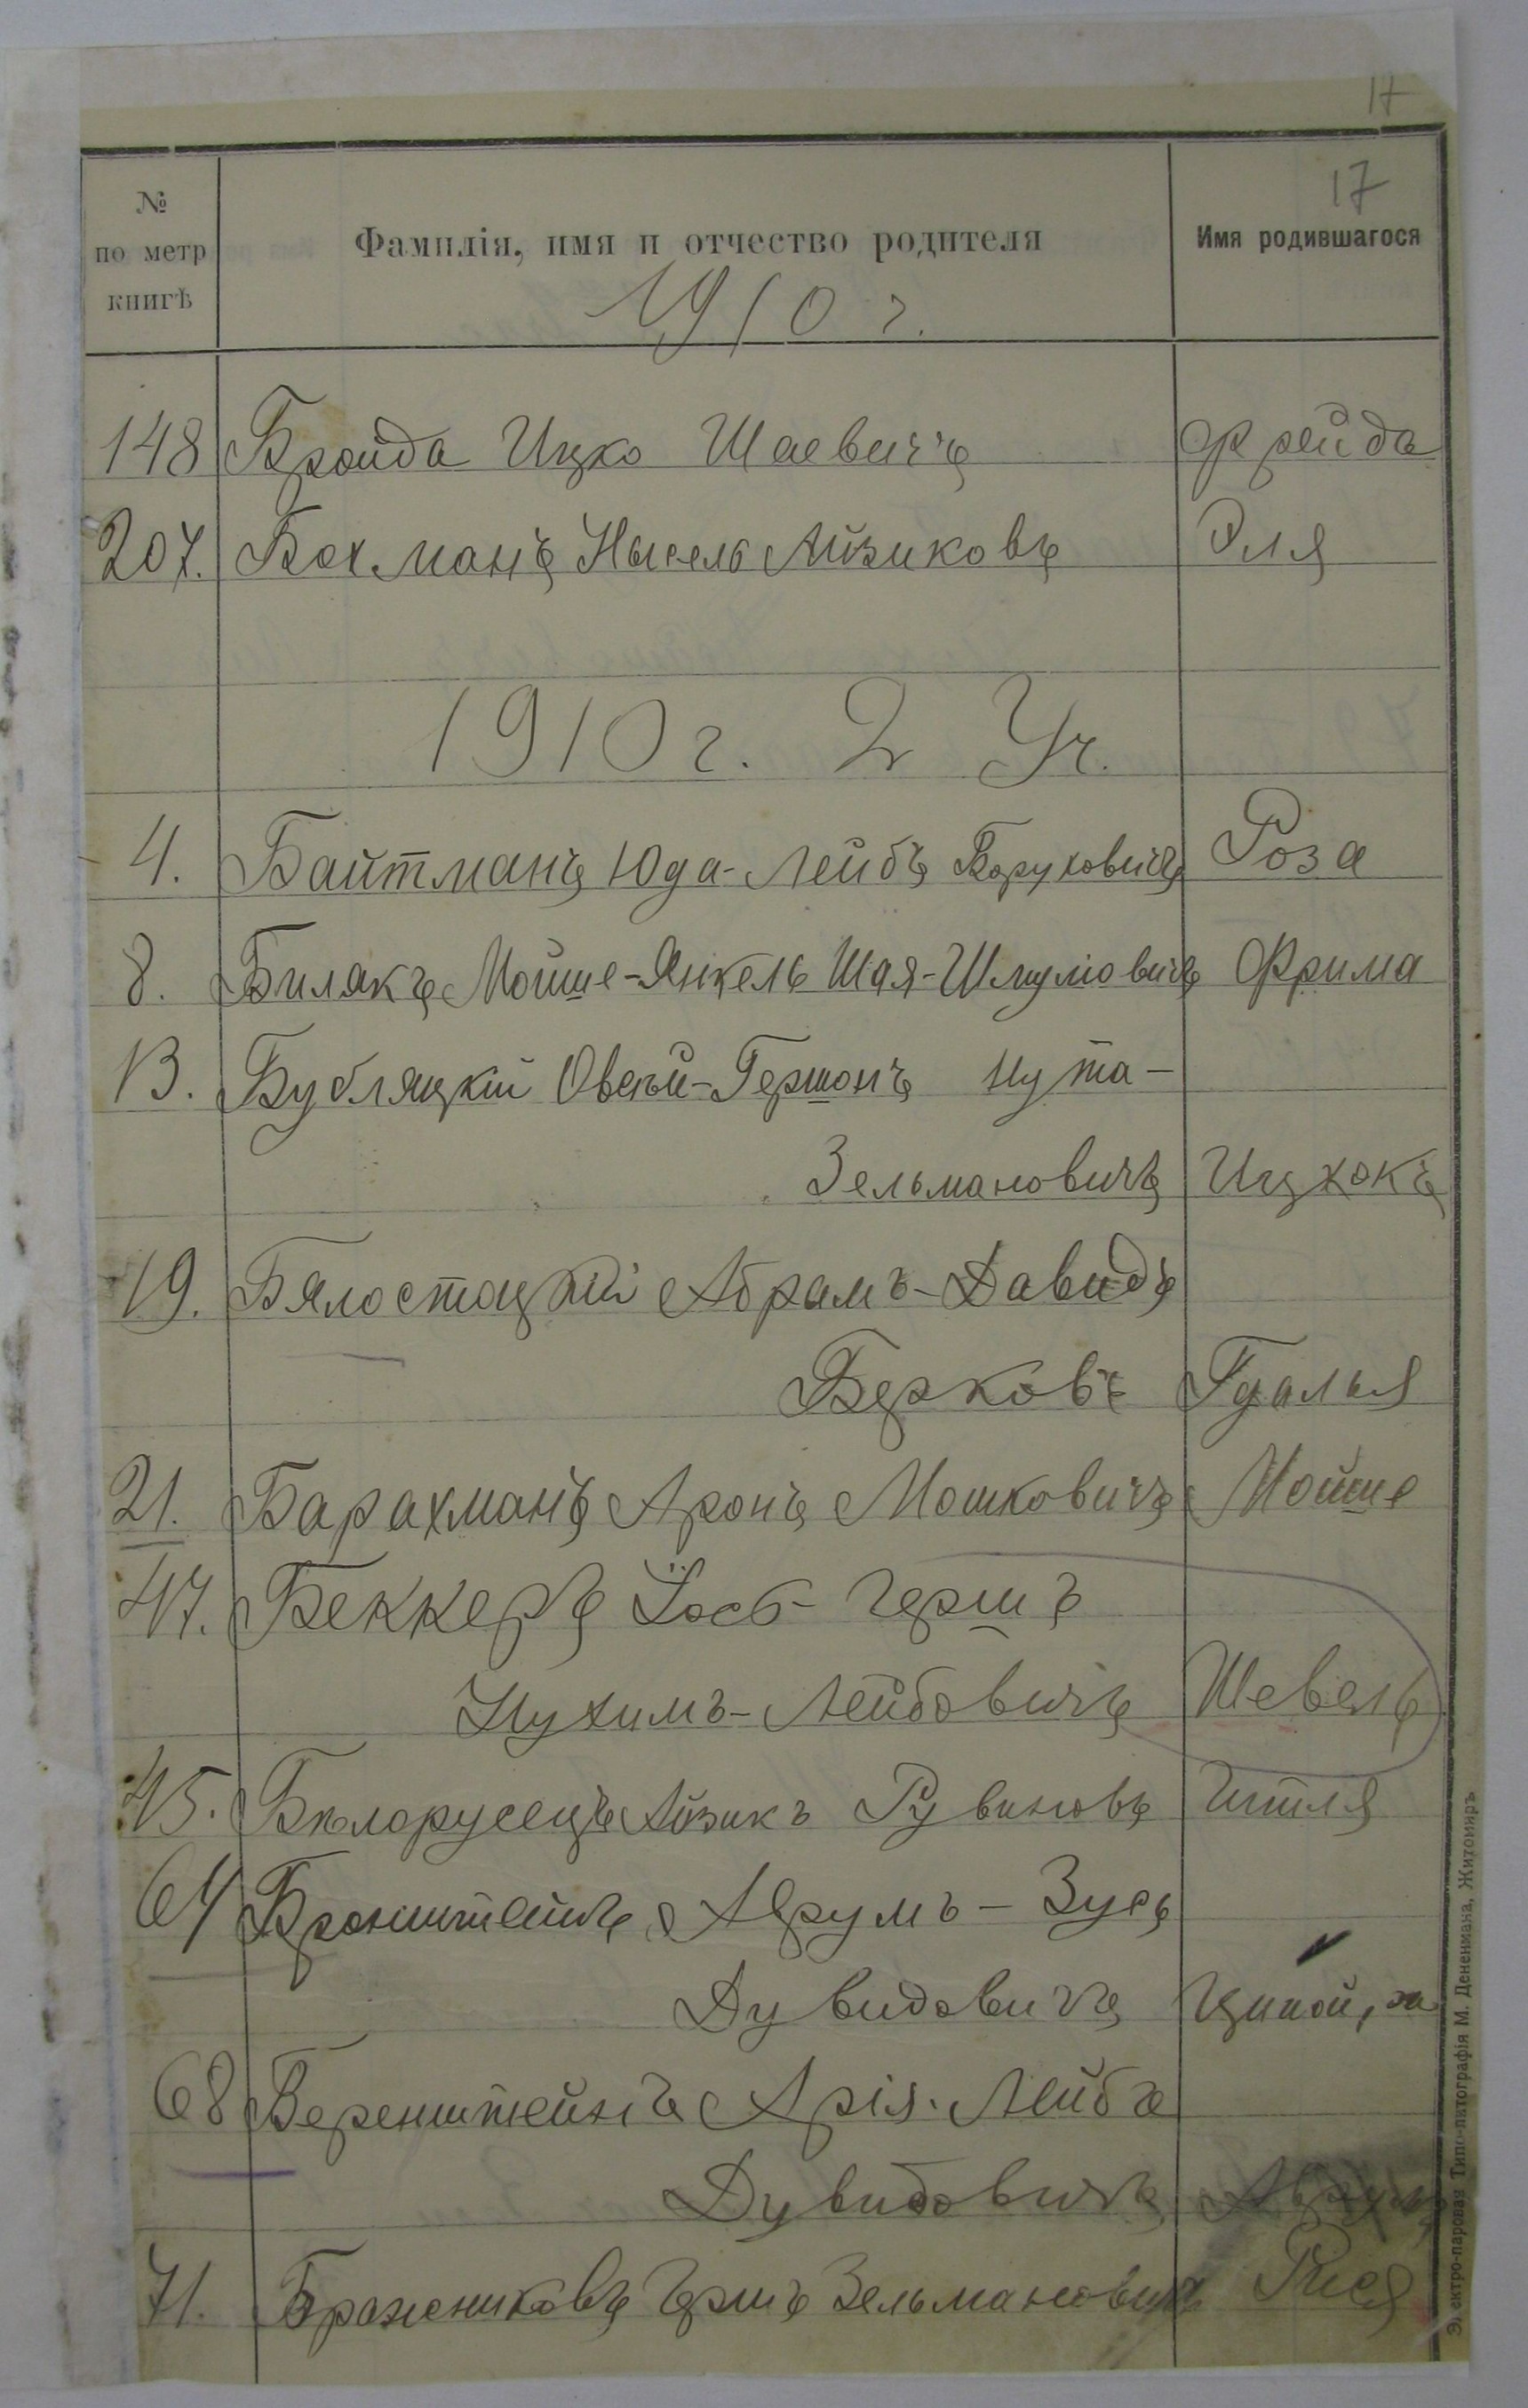 17
17
№
по метр
книгѣ
Фамилія, имя и отчество родителя
Имя родившагося
1910 г.
148 Бройда Ицко Шаевичъ Фрейда
207. Бохманъ Нысель Айзиковъ Эля
1910 г. 2 Уч.
4. Байтманъ Юда-Лейбъ Боруховичъ Роза
8. Билякъ Мойше-Янкель Шая-Шмуловичъ Фрима
13. Бубляцкій Овсей-Гершонъ Нута-
Зельмановичъ Ицхокъ
19. Бялостоцкій Абрамъ-Давидъ
Берковъ Гдалья
21. Барахманъ Аронъ Мошковичъ Мойше
47. Беккеръ Іось-Гершъ
Нухимъ-Лейбовичъ Шевель
45. Бѣлорусецъ Айзикъ Рувиновъ Гитля
64 Бронштейнъ Аврумъ-Зусь
Дувидовичъ
68 Беренштейнъ Арія-Лейбъ
Дувидовичъ Аврумъ
71. Бражниковъ Гершъ Зельмановичъ Рися
Электро-паровая Типо-литографія М. Дененмана, Житомиръ